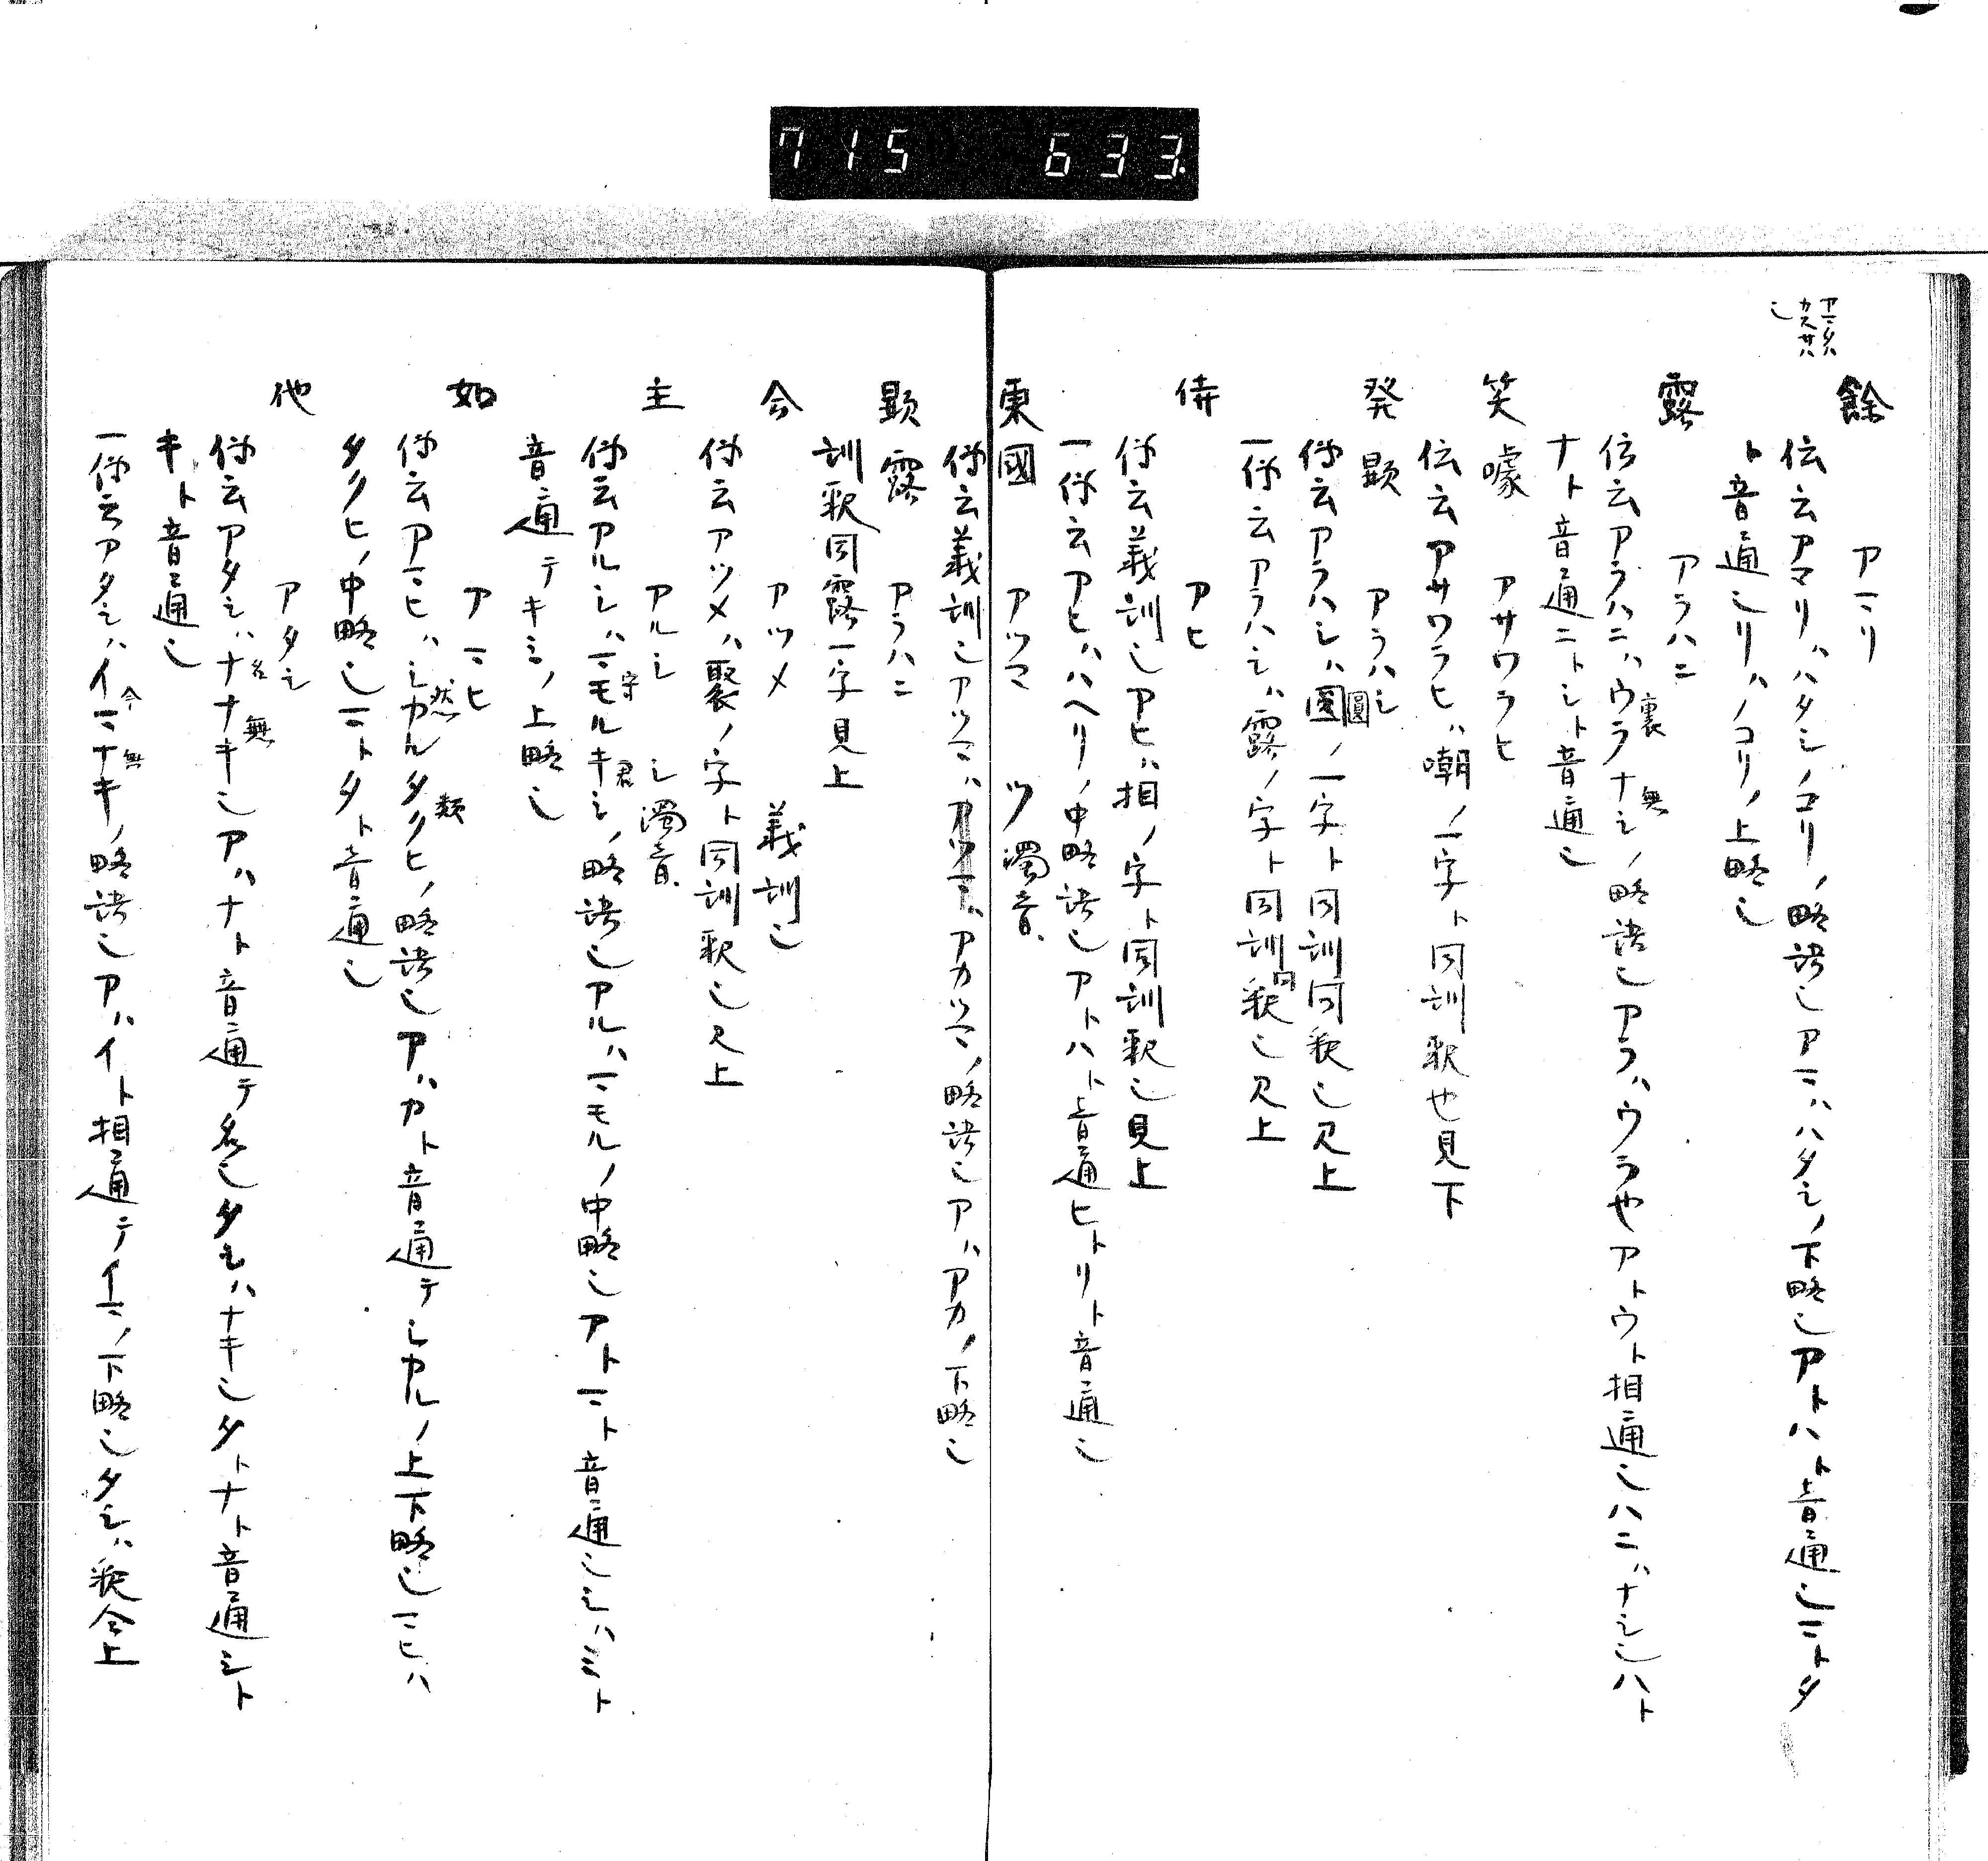 715 633
餘 アマリ
伝云アマリハハタシノコリノ略語也アマハハタシノ下略也アトハト音通也マトタ
ト音通也リハノコリノ上略也
露 アラハニ
伝云アラハニハウラナシノ略語也アラハウラ也アトウト相通也ハニハナシ也ハト
裏 無
ナト音通ニトシト音通也
笑噱 アサワラヒ
伝云アサワラヒハ嘲ノ一字ト同訓釈也見下
発顕 アラハシ
伝云アラハシハ圓ノ一字ト同訓同釈也見上
圓
一伝云アラハシハ露ノ字ト同訓同釈也見上
侍 アヒ
伝云義訓也アヒハ相ノ字ト同訓釈也見上
一伝云アヒハハヘリノ中略語也アトハト音通ヒトリト音通也
東國 アツマ ツ濁音
伝云義訓也アツマハアカツマノ略語也アハアカノ下略也
顕露 アラハニ
訓釈同露一字見上
会 アツメ 義訓也
伝云アツメハ聚ノ字ト同訓釈也見上
主 アルシ シ濁音
伝云アルシハマモルキシノ略語也アルハマモルノ中略也アトマト音通也シハミト
守 君
音通テキミノ上略也
如 アマヒ
伝云アマヒハシカルタクヒノ略語也アハカト音通テシカルノ上下略也マヒハ
然 類
タクヒノ中略也マトタト音通也
他 アタシ
伝云アタシハナナキ也アハナト音通テ名也タシハナキ也タトナト音通シト
名 無
キト音通也
一伝云アタシハイマナキノ略語也アハイト相通テイマノ下略也タシハ釈会上
今 無